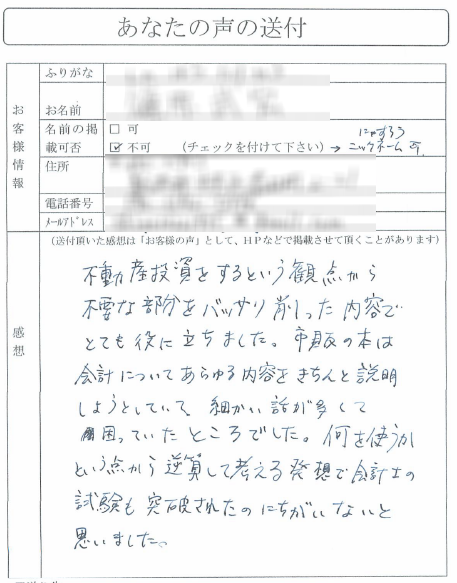 あなたの声の送付
お客様情報
ふりがな
お名前
名前の掲載可否
□ 可
☑ 不可 (チェックを付けて下さい) → ニックネーム 可
住所
電話番号
メールアドレス
(送付頂いた感想は「お客様の声」として、HPなどで掲載させて頂くことがあります)
感想
不動産投資をするという観点から
不要な部分をバッサリ削った内容で
とても役に立ちました。市販の本は
会計についてあらゆる内容をきちんと説明
しようとしていて、細かい話が多くて
困っていたところでした。何を使うか
という点から逆算して考える発想で会計士の
試験も突破されたのにちがいないと
思いました。